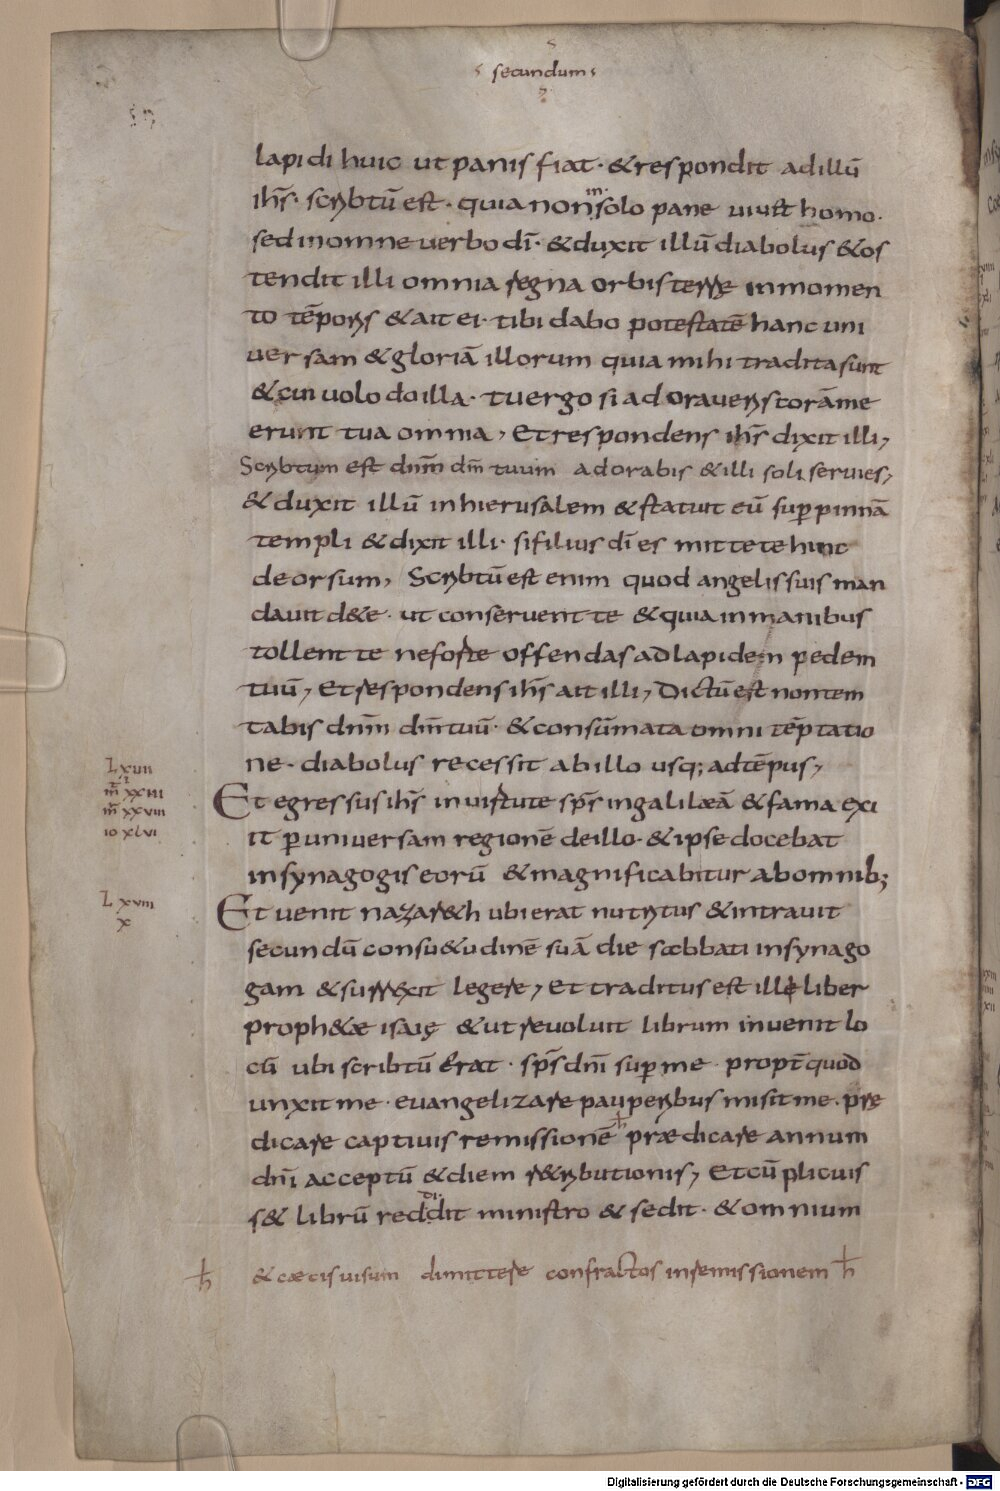 secundum
lapidi huic ut panis fiat · & respondit ad illū
ihs̄ · scribtū est · quia non in solo pane uiuit homo ·
sed in omne uerbo dī · & duxit illū diabolus & os
tendit illi omnia regna orbis terrę in momen
to tēporis & ait ei · tibi dabo potestatē hanc uni
uersam & gloriā illorum quia mihi tradita sunt
& cui uolo do illa · tu ergo si adoraueris corā me
erunt tua omnia, Et respondens ihs̄ dixit illi,
Scribtum est dnm̄ dm̄ tuum adorabis & illi soli seruies,
& duxit illū in hierusalem & statuit eū sup̲ pinnā
templi & dixit illi · si filius dī es mitte te hinc
deorsum, Scribtū est enim quod angelis suis man
dauit d& e · ut conseruent te & quia in manibus
tollent te ne forte offendas ad lapidem pedem
tuū, Et respondens ihs̄ ait illi, Dictū est non tem
tabis dnm̄ dm̄ tuū · & consūmata omni tēptatio
ne · diabolus recessit ab illo usq; ad tēpus,
LXVII
m̄ XXIII
m̄ XXVIII
io XLVI
Et egressus ihs̄ in uirtute sps̄ in galilæā & fama exi
it p̲ uniuersam regionē de illo · & ipse docebat
in synagogis eorū & magnificabitur ab omnib;
LXVIII
X
Et uenit nazar&h ubi erat nutritus & intrauit
secundū consu&udinē suā die sabbati in synago
gam & surrexit legere, Et traditus est ille liber
proph&æ isaię & ut reuoluit librum inuenit lo
cū ubi scribtū erat · sps̄ dnī sup̲ me · propt̄ quod
unxit me · euangelizare pauperibus misit me · prę
dicare captiuis remissionē ħ prædicare annum
dnī acceptū & diem r&ributionis, Et cū plicuis
s& librū reddidit ministro & sedit · & omnium
ħ & cæcis uisum dimittere confractos in remissionem ħ
Digitalisierung gefördert durch die Deutsche Forschungsgemeinschaft - DFG